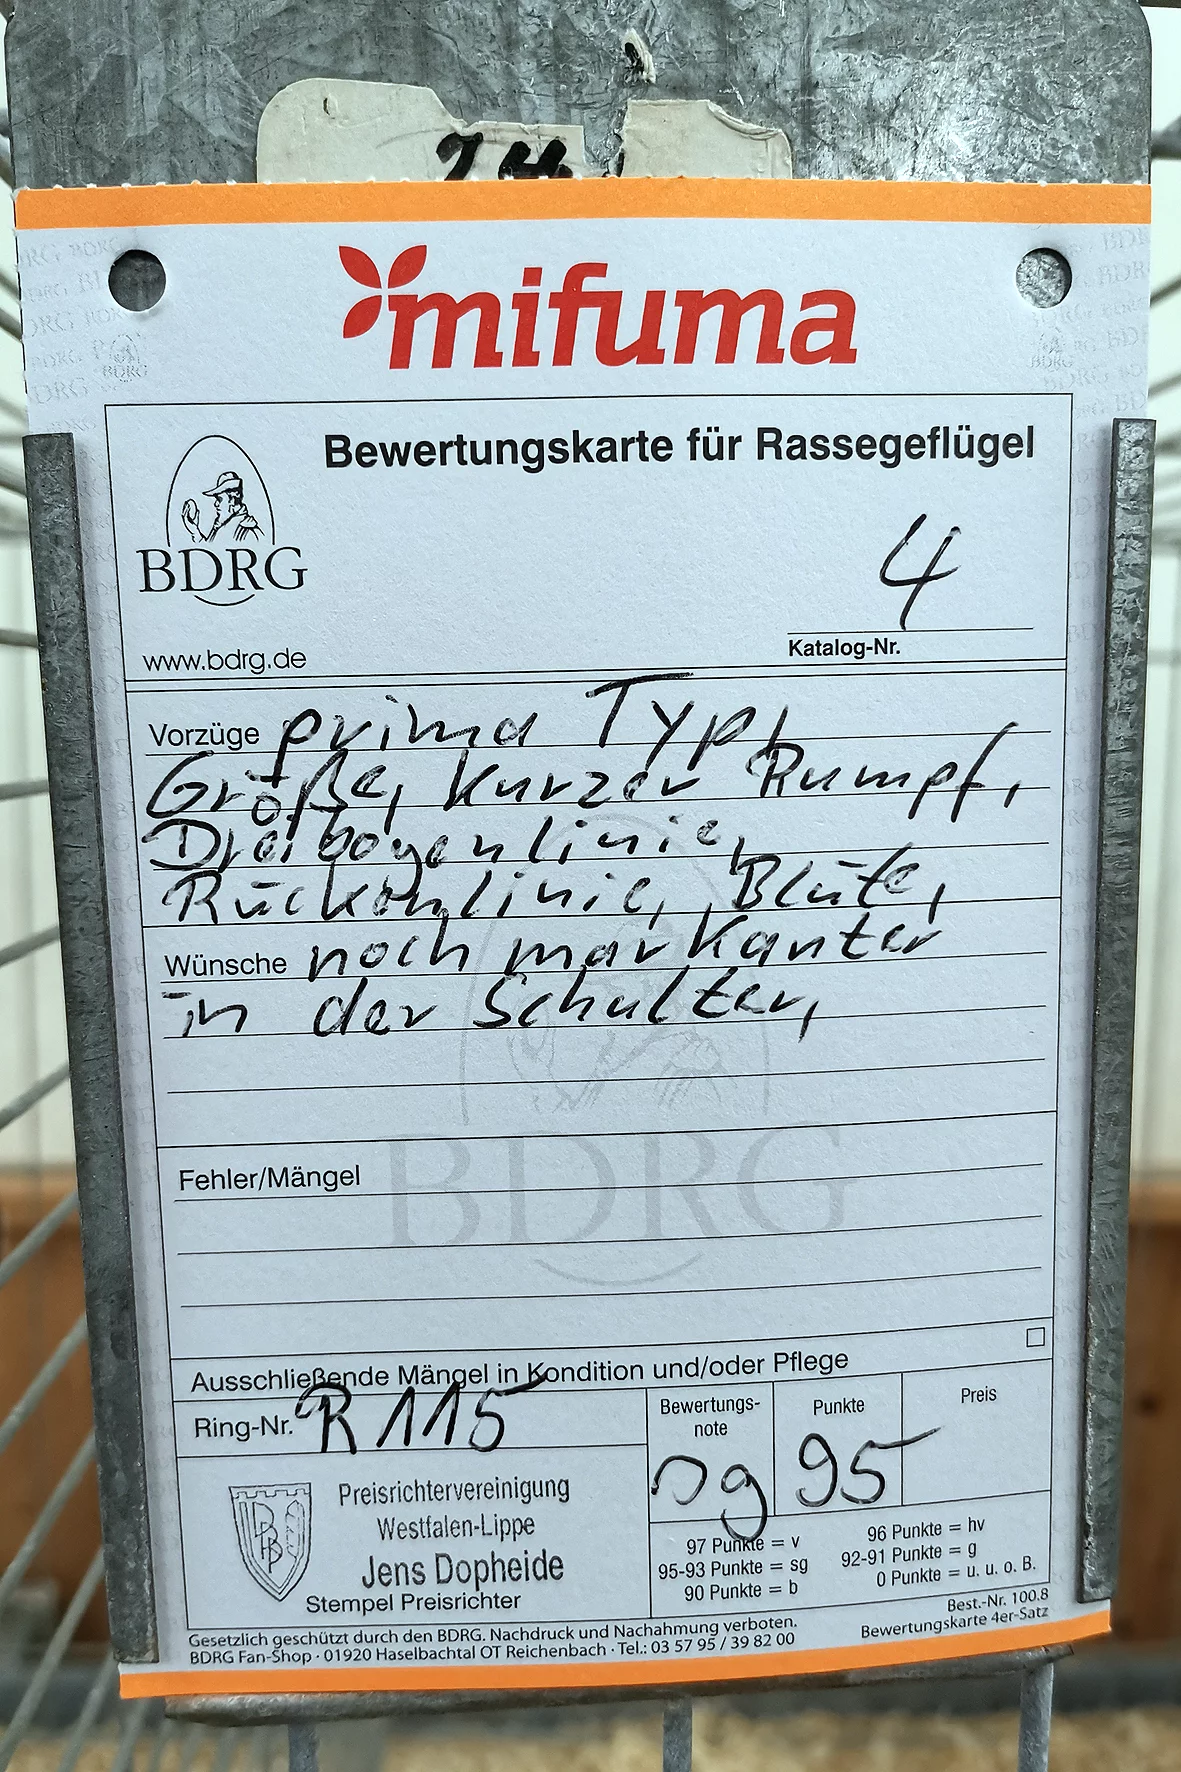 mifuma
Bewertungskarte für Rassegeflügel
BDRG
4
www.bdrg.de
Katalog-Nr.
Vorzüge prima Typ,
Größe, kurzer Rumpf,
Dreibogenlinie,
Rückenlinie, Blüte,
Wünsche noch markanter
in der Schulter,
BDRG
Fehler/Mängel
Ausschließende Mängel in Kondition und/oder Pflege
Ring-Nr. R 115
Bewertungs-
note
sg
Punkte
95
Preis
Preisrichtervereinigung
Westfalen-Lippe
Jens Dopheide
Stempel Preisrichter
97 Punkte = v
95-93 Punkte = sg
90 Punkte = b
96 Punkte = hv
92-91 Punkte = g
0 Punkte = u. u. o. B.
Gesetzlich geschützt durch den BDRG. Nachdruck und Nachahmung verboten.
BDRG Fan-Shop · 01920 Haselbachtal OT Reichenbach · Tel.: 03 57 95 / 39 82 00
Best.-Nr. 100.8
Bewertungskarte 4er-Satz